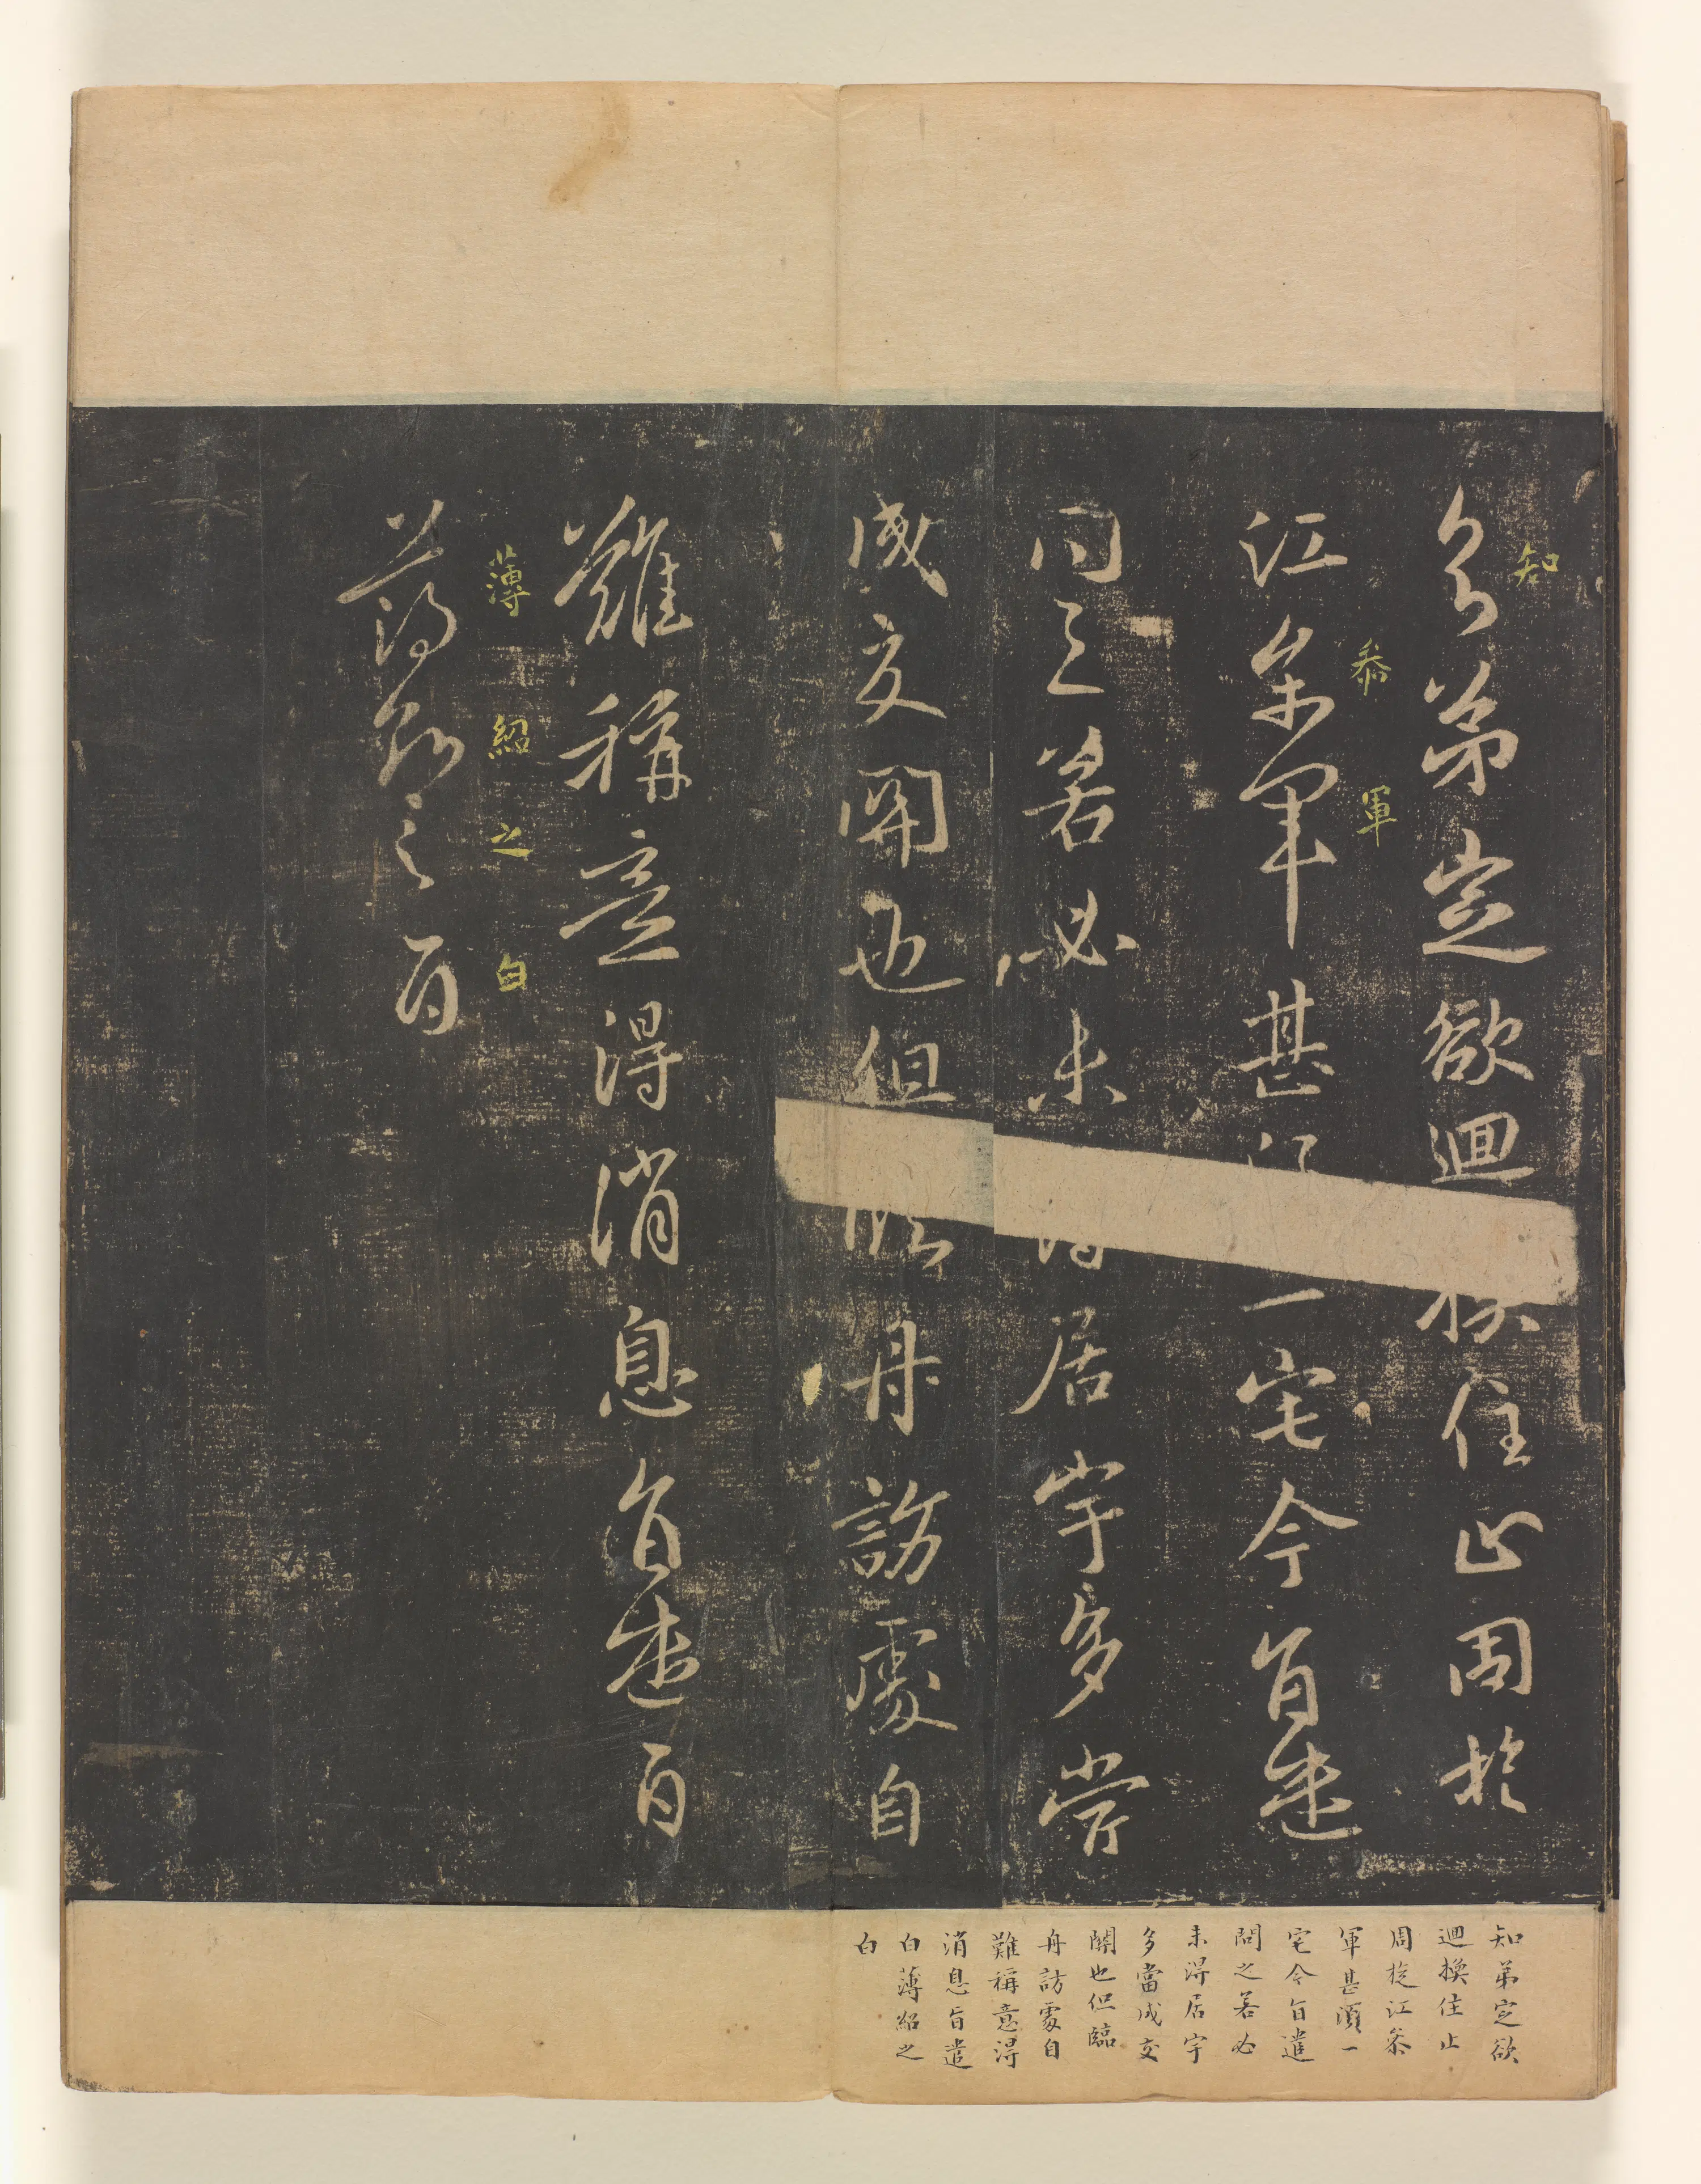 知弟定欲迴換住止周旋
江參軍甚須一宅今旨遣
問之若必未得居宇多當
成交關也但臨舟訪處自
難稱意得消息旨遣白
薄紹之白
知
叅
軍
薄紹之白
知弟定欲
迴換住止
周旋江叅
軍甚須一
宅今旨遣
問之若必
未得居宇
多當成交
關也但臨
舟訪處自
難稱意得
消息旨遣
白薄紹之
白